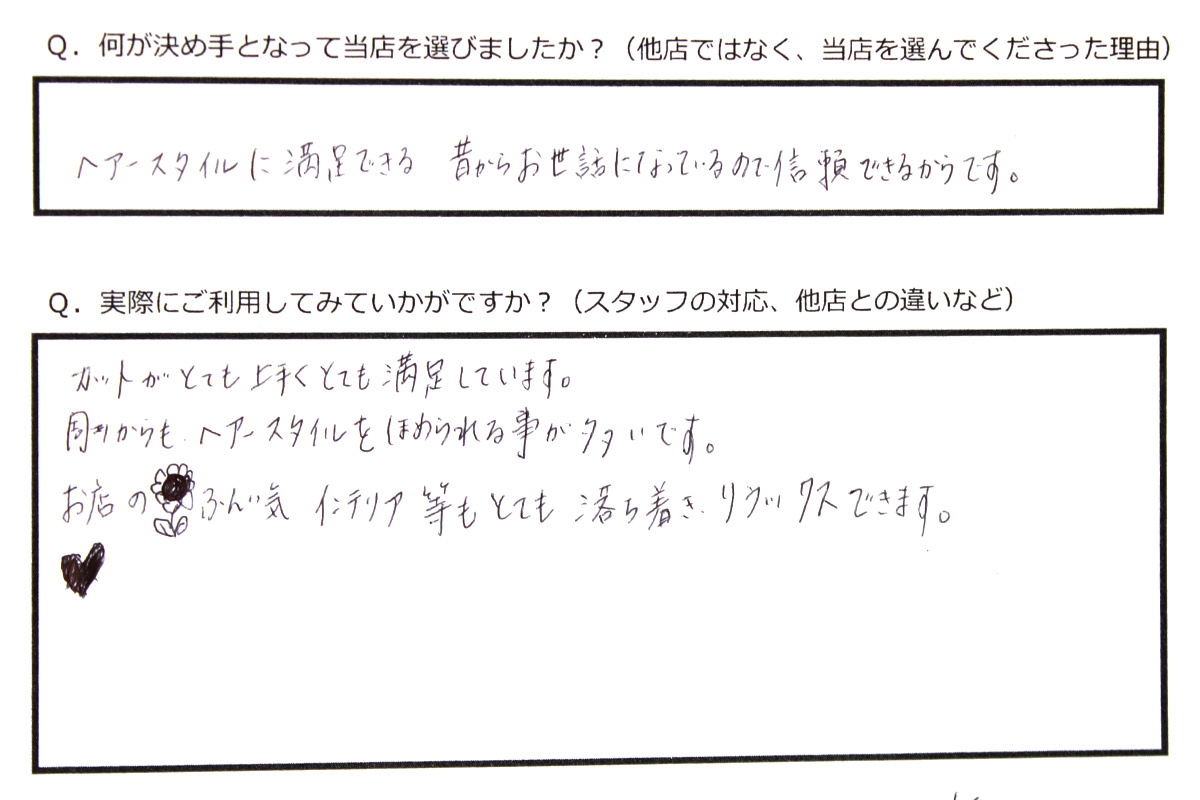 Q．何が決め手となって当店を選びましたか？（他店ではなく、当店を選んでくださった理由）
ヘアースタイルに満足できる 昔からお世話になっているので信頼できるからです。
Q．実際にご利用してみていかがですか？（スタッフの対応、他店との違いなど）
カットがとても上手くとても満足しています。
周りからも、ヘアースタイルをほめられる事が多いです。
お店のふんい気 インテリア等もとても落ち着き、リラックスできます。